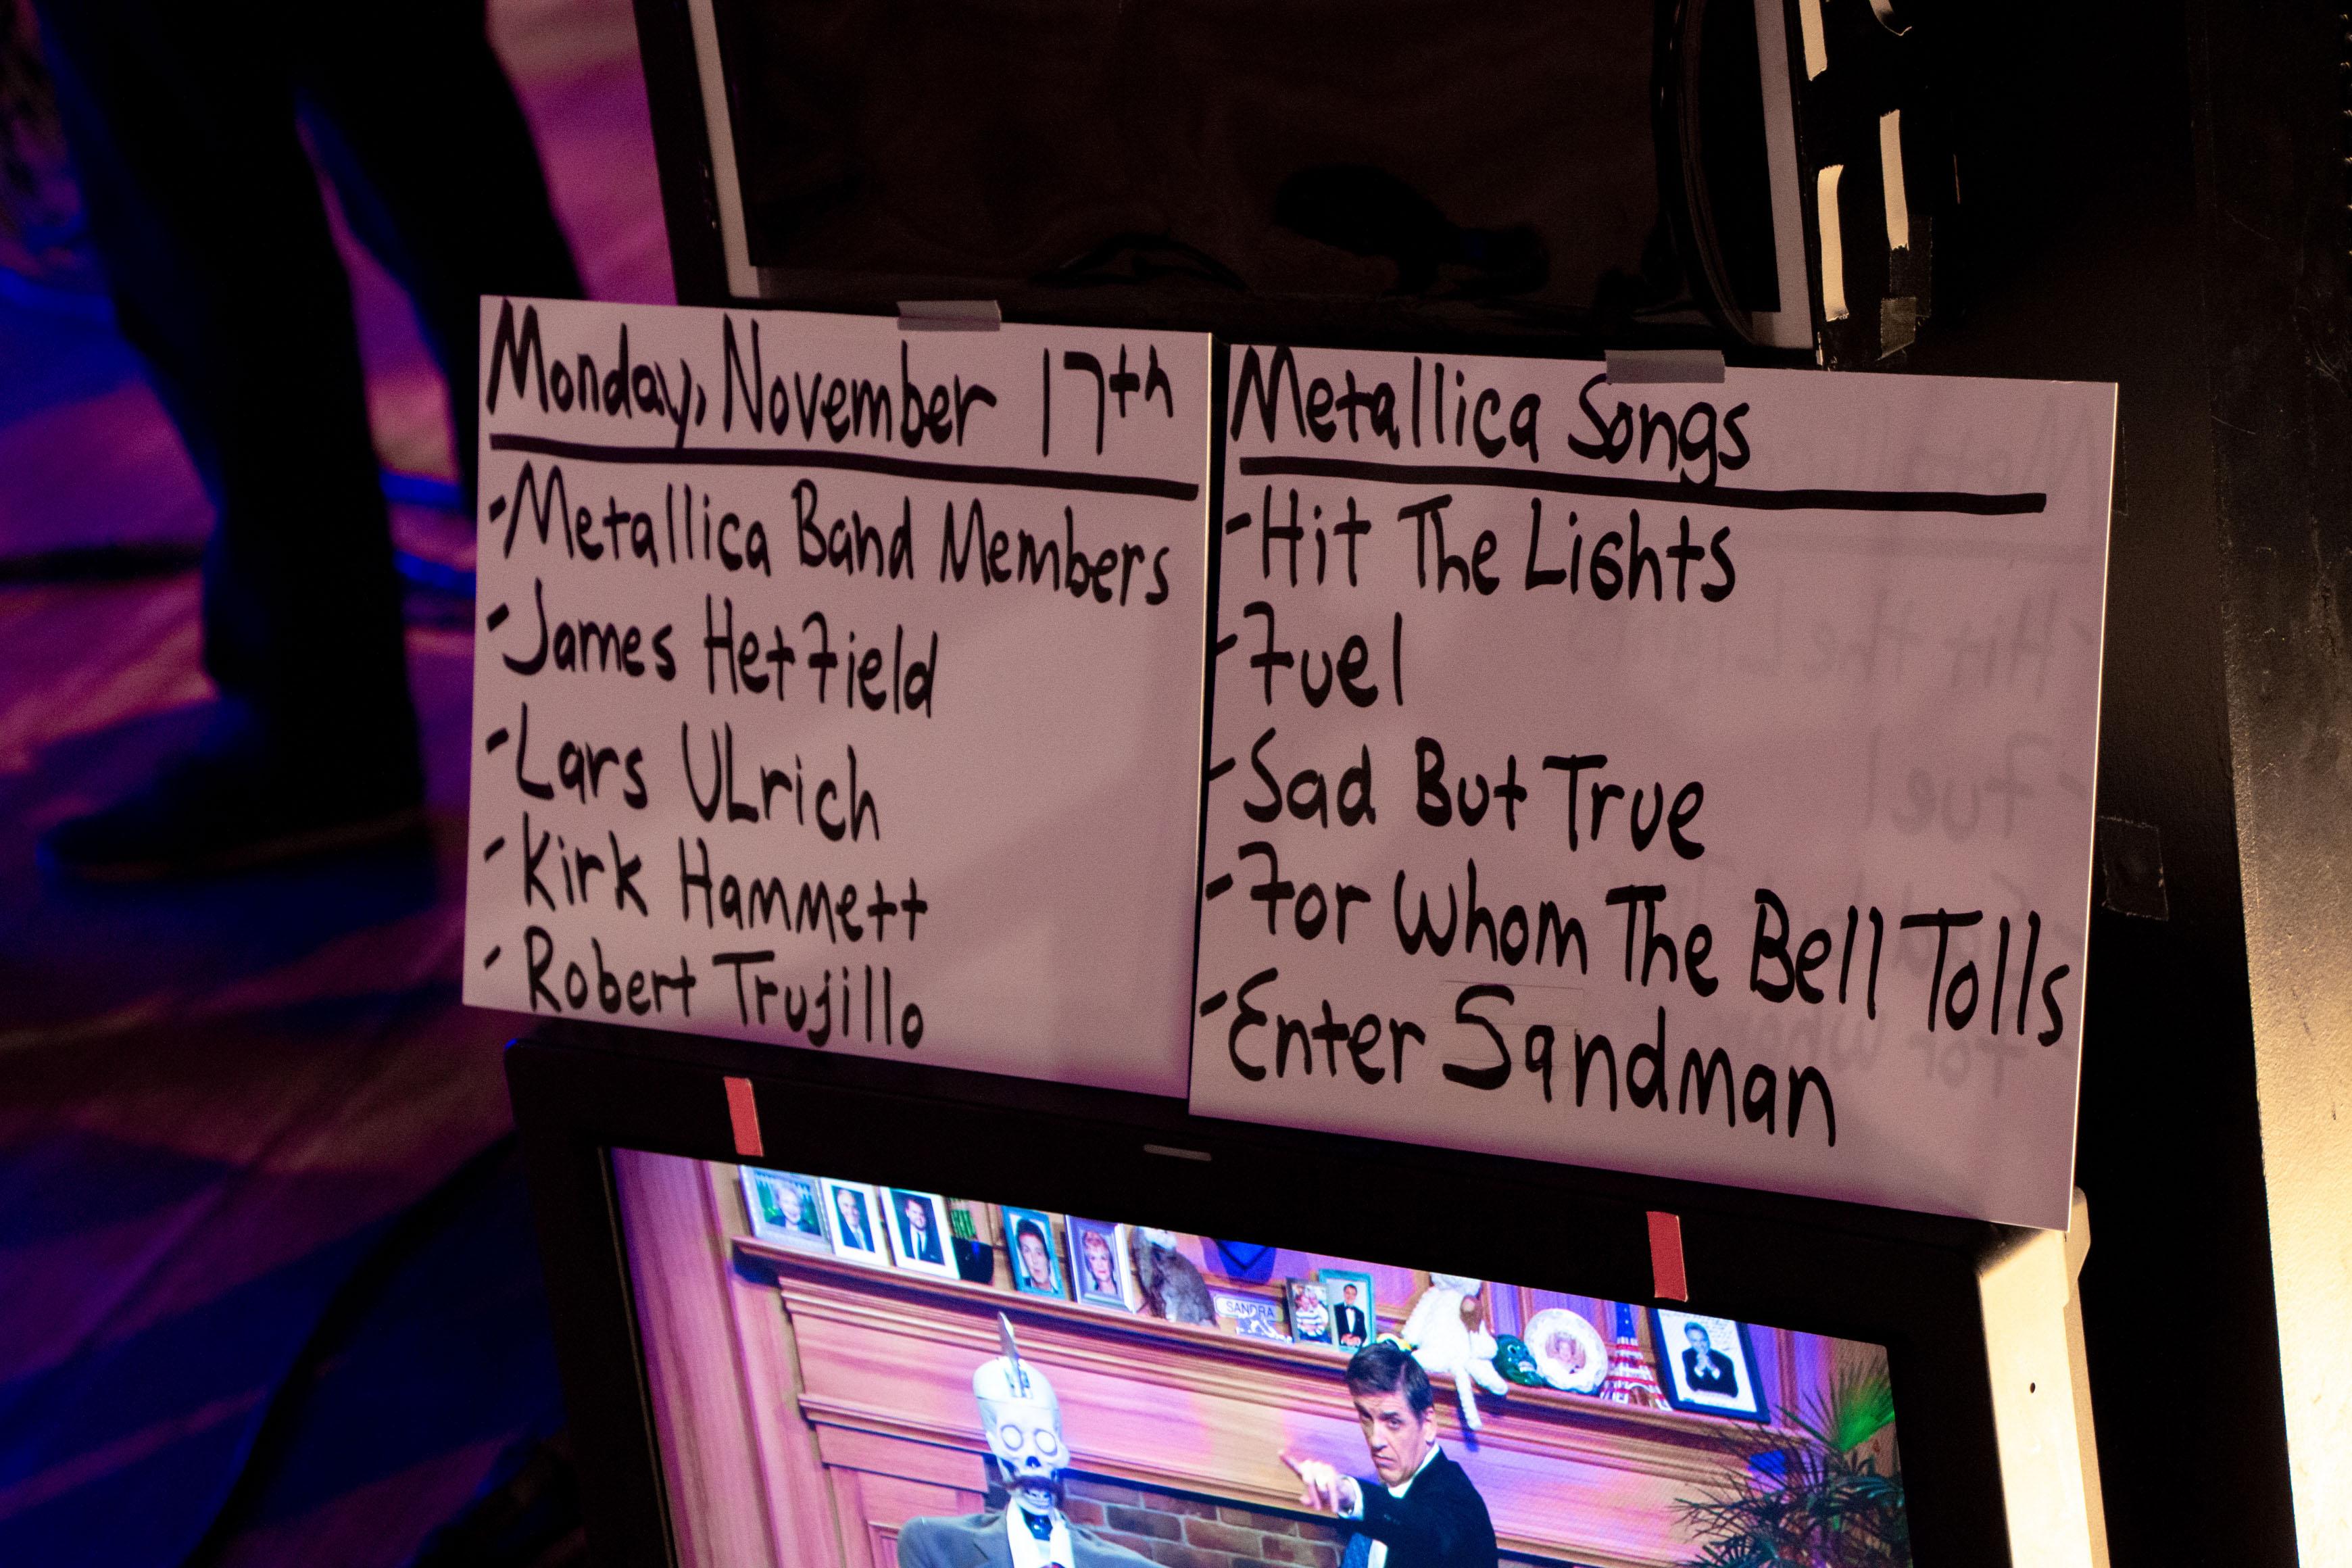 Monday, November 17th
-Metallica Band Members
-James Hetfield
-Lars ULrich
-Kirk Hammett
-Robert Trujillo
Metallica Songs
-Hit The LiGhts
-Fuel
-Sad But True
-For Whom The Bell Tolls
-Enter Sandman
SANDRA